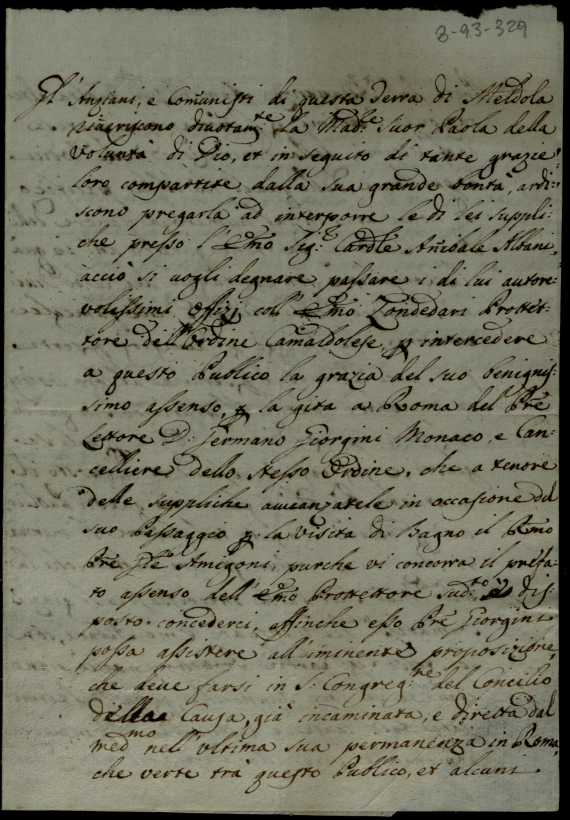 3-93-329
Gl' Anziani, e Comunisti di questa Terra di Meldola
riueriscono diuotam.te la Mad.e Suor Paola della
Volontà di Dio, et in seguito di tante grazie
loro compartite dalla sua grande bontà, ardi:
scono pregarla ad interporre le di lei suppli:
che presso l'Emo Sig.r Cardle Anibale Albani,
acciò si uogli degnare passare i di lui autore:
volissimi offizi coll' Emo Zondedari Protet:
tore dell' Ordine Camaldolese, p intercedere
a questo Publico la grazia del suo benignis:
simo assenso, p la gita a Roma del Pre
Lettore D. Germano Giorgini Monaco, e Can:
celliere dello stesso Ordine, che a tenore
delle suppliche auanzatele in occasione del
suo Passaggio p la uisita di Bagno il Rmo
Pre Gle Amigoni, purche vi concorra il prefa:
to assenso dell' Emo Protettore sud.to è dis
posto concederci, affinche esso Pre Giorgini
possa assistere all' iminente proposizione,
che deue farsi in S. Congreg.ne del Concilio
della Causa, già incaminata, e diretta dal
med.mo nell' ultima sua permanenza in Roma,
che verte trà questo Publico, et alcuni